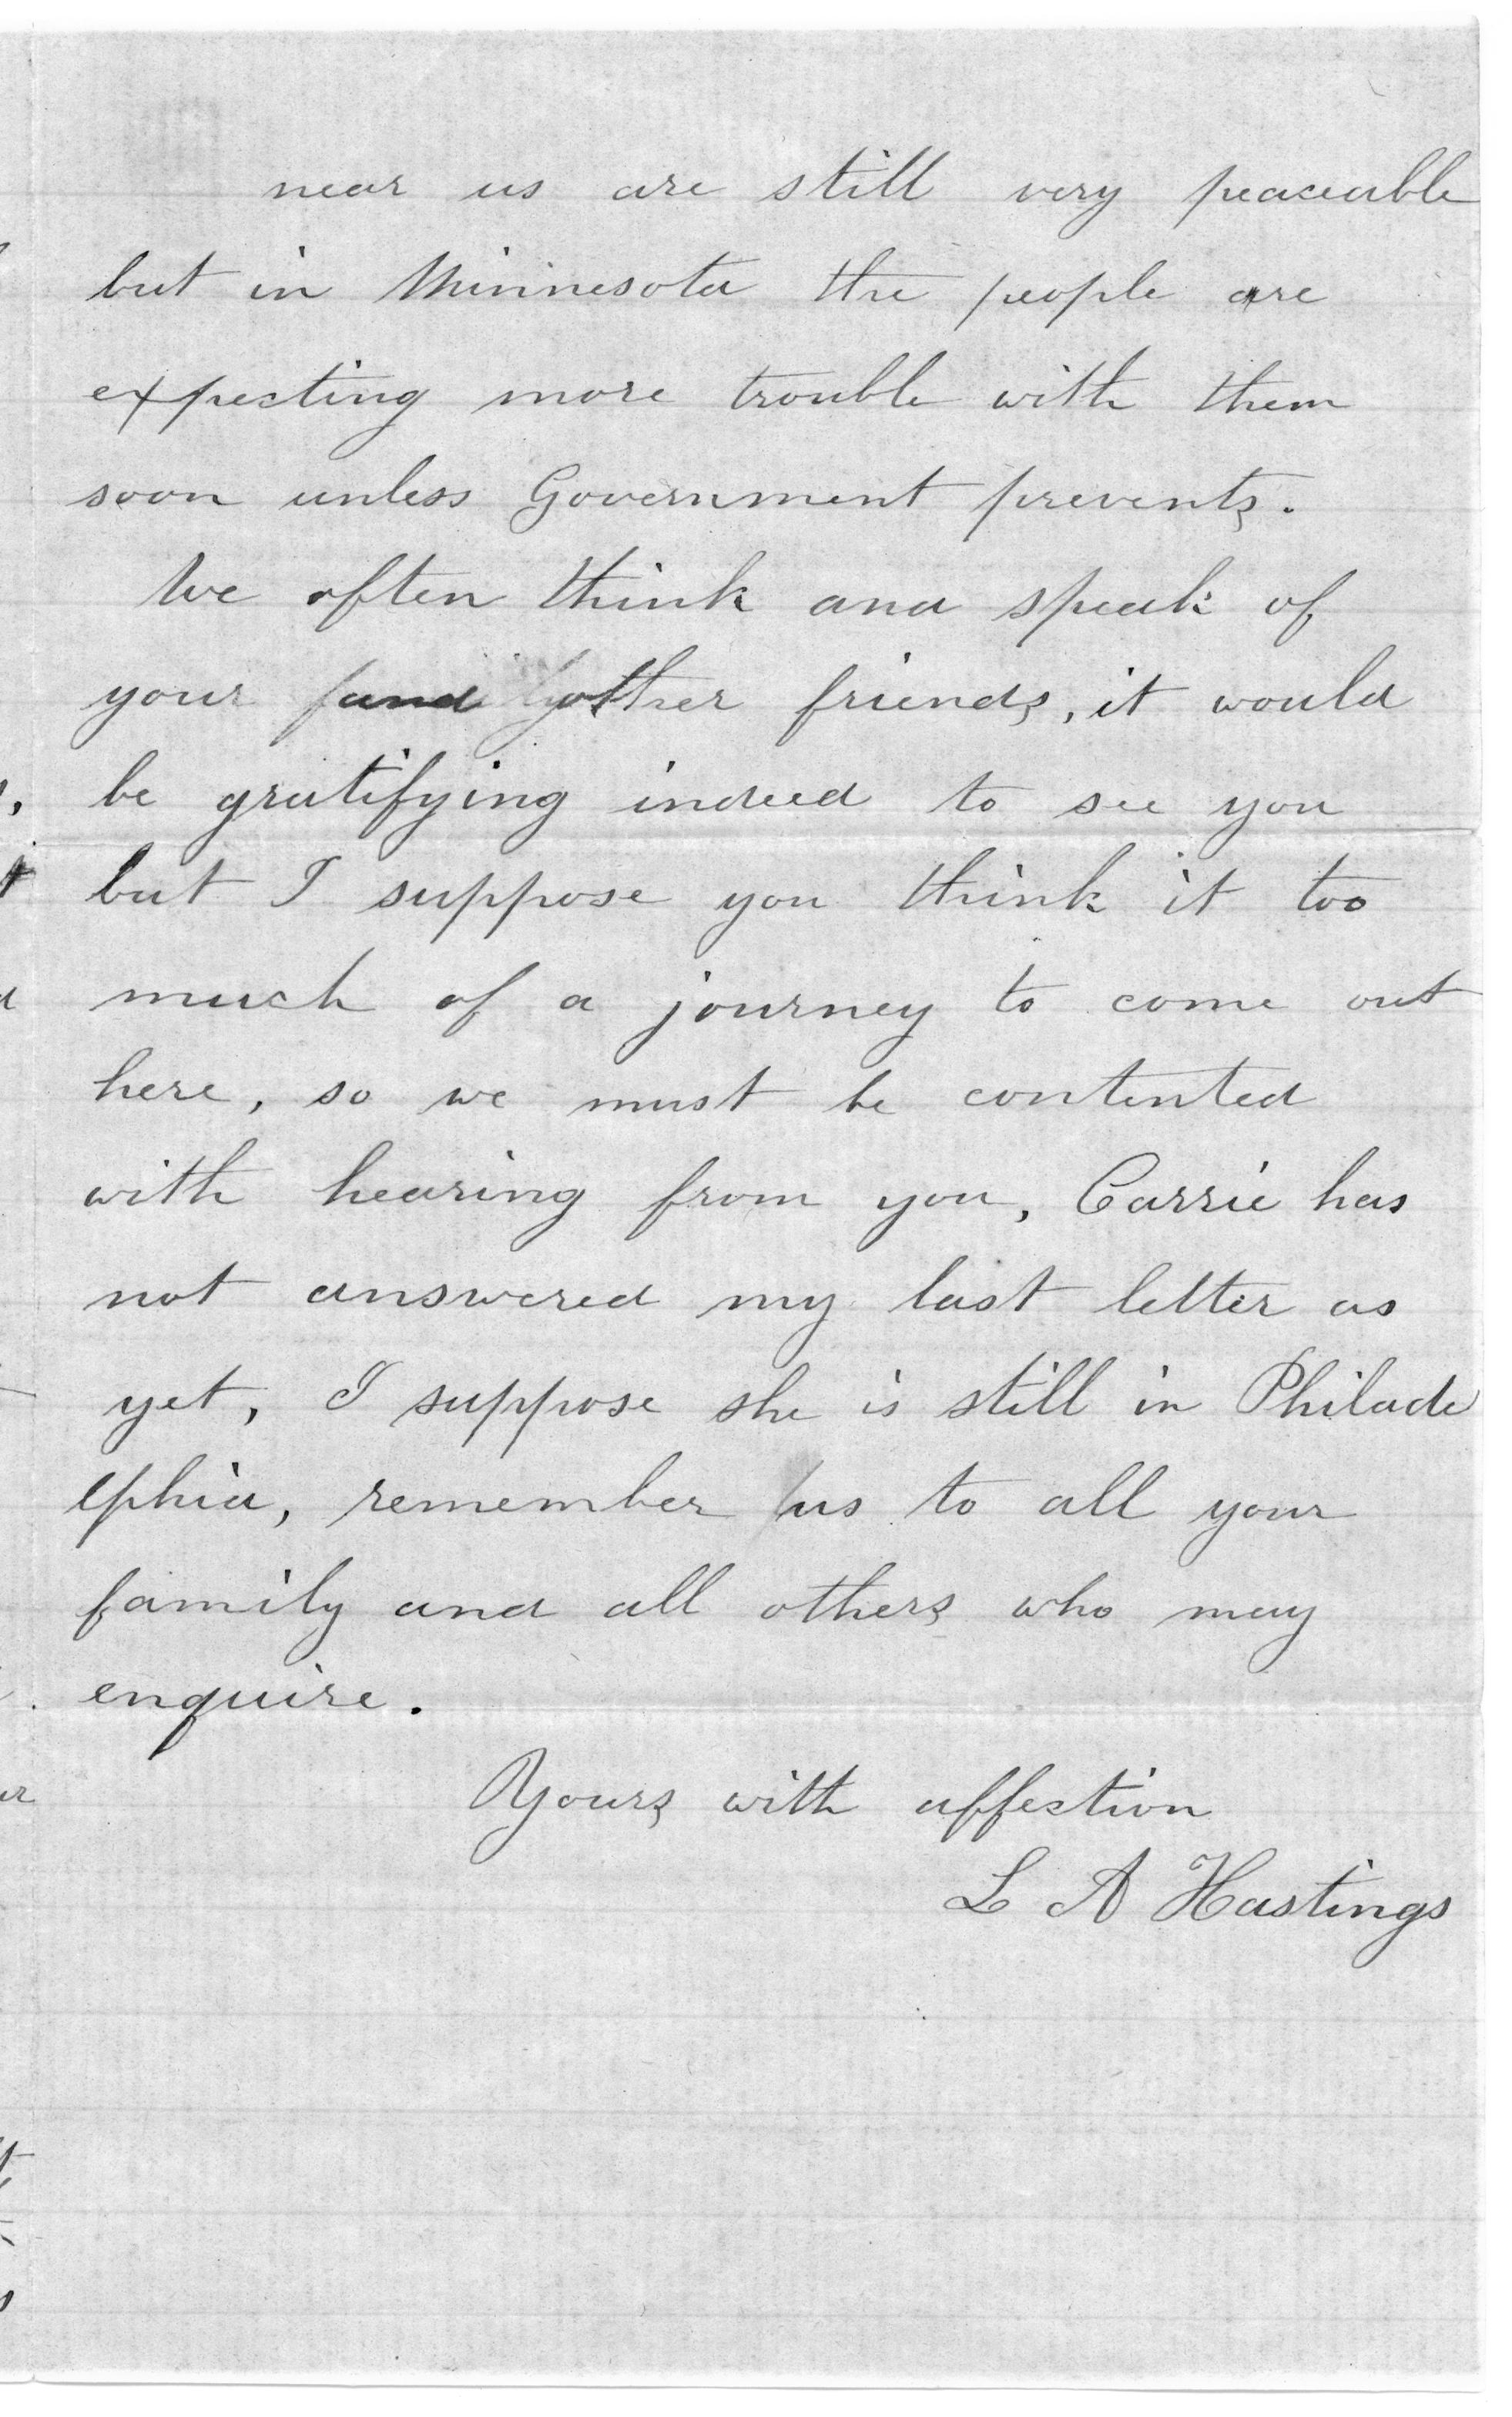 near us are still very peaceable
but in Minnesota the people are
expecting more trouble with them
soon unless Government prevents.
We often think and speak of
your and other friends, it would
be gratifying indeed to see you
but I suppose you think it too
much of a journey to come out
here, so we must be contented
with hearing from you, Carrie has
not answered my last letter as
yet, I suppose she is still in Philade
lphia, remember us to all your
family and all others who may
enquire.
Yours with affection
L A Hastings